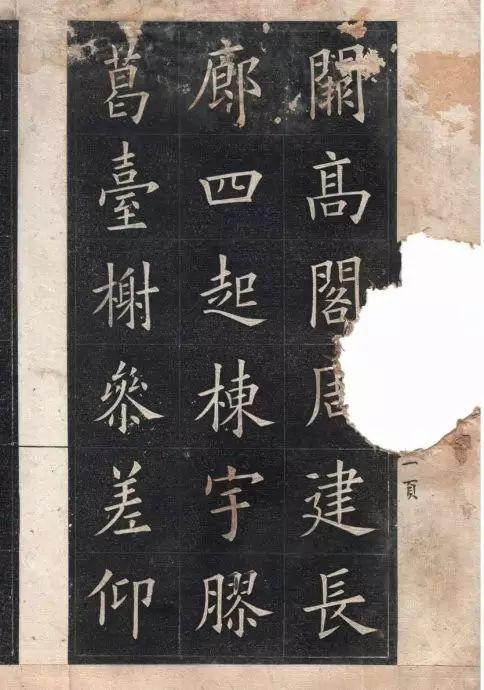 闕髙閣建長
廊四起棟宇膠
葛臺榭叅差仰
一頁